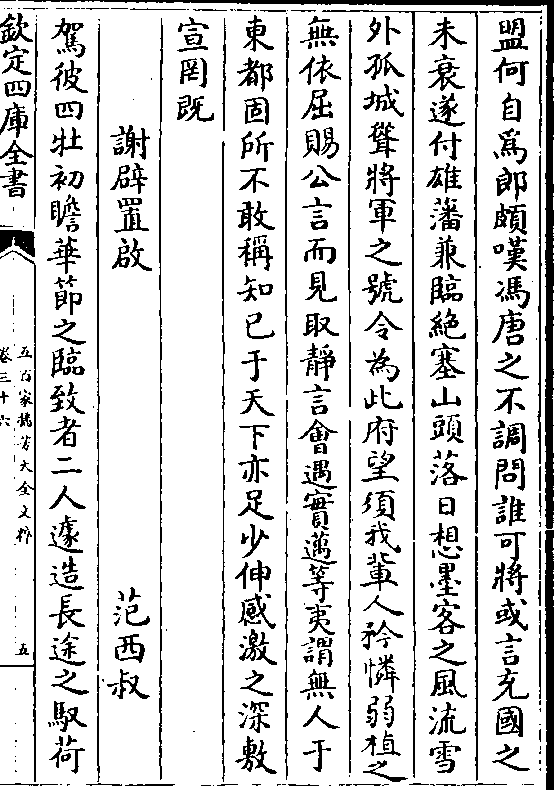 盟何自爲郎頗嘆馮唐之不調問誰可將或言充國之
未衰遂付雄藩兼臨絶塞山頭落日想墨客之風流雪
外孤城聳將軍之號令為此府望須我輩人矜憐弱植之
無依屈賜公言而見取靜言會遇實邁等夷謂無人于
東都固所不敢稱知己于天下亦足少伸感激之深敷
宣罔既
謝辟置啟
范西叔
駕彼四牡初瞻華節之臨致者二人遽造長途之馭荷
欽定四庫全書
五百家播芳大全文粹
卷三十六
五